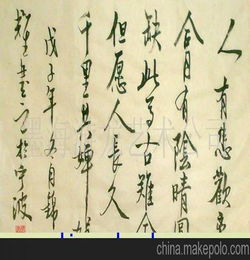 人有悲歡离
合月有陰晴圓
缺此事古難全
但愿人長久
千里共嬋娟
戊子年冬月錦
於宁波
艺术公司
china.makepolo.com